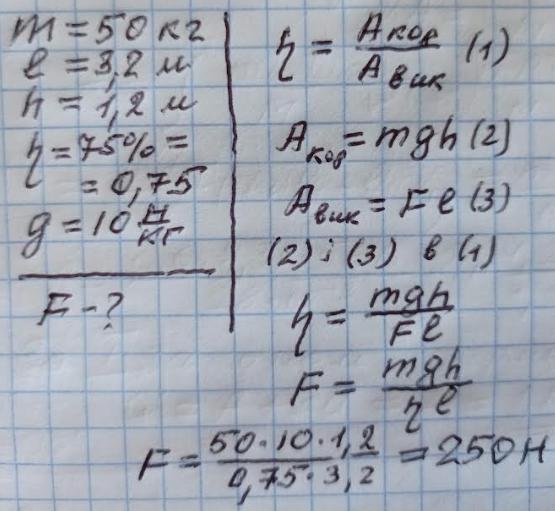 m = 50 кг
l = 3,2 м
h = 1,2 м
η = 75% =
= 0,75
g = 10 Н/кг
F - ?
η = Aкор/Aвик (1)
Aкор = mgh (2)
Aвик = Fl (3)
(2) і (3) в (1)
η = mgh/Fl
F = mgh/ηl
F = 50·10·1,2/0,75·3,2 = 250 Н